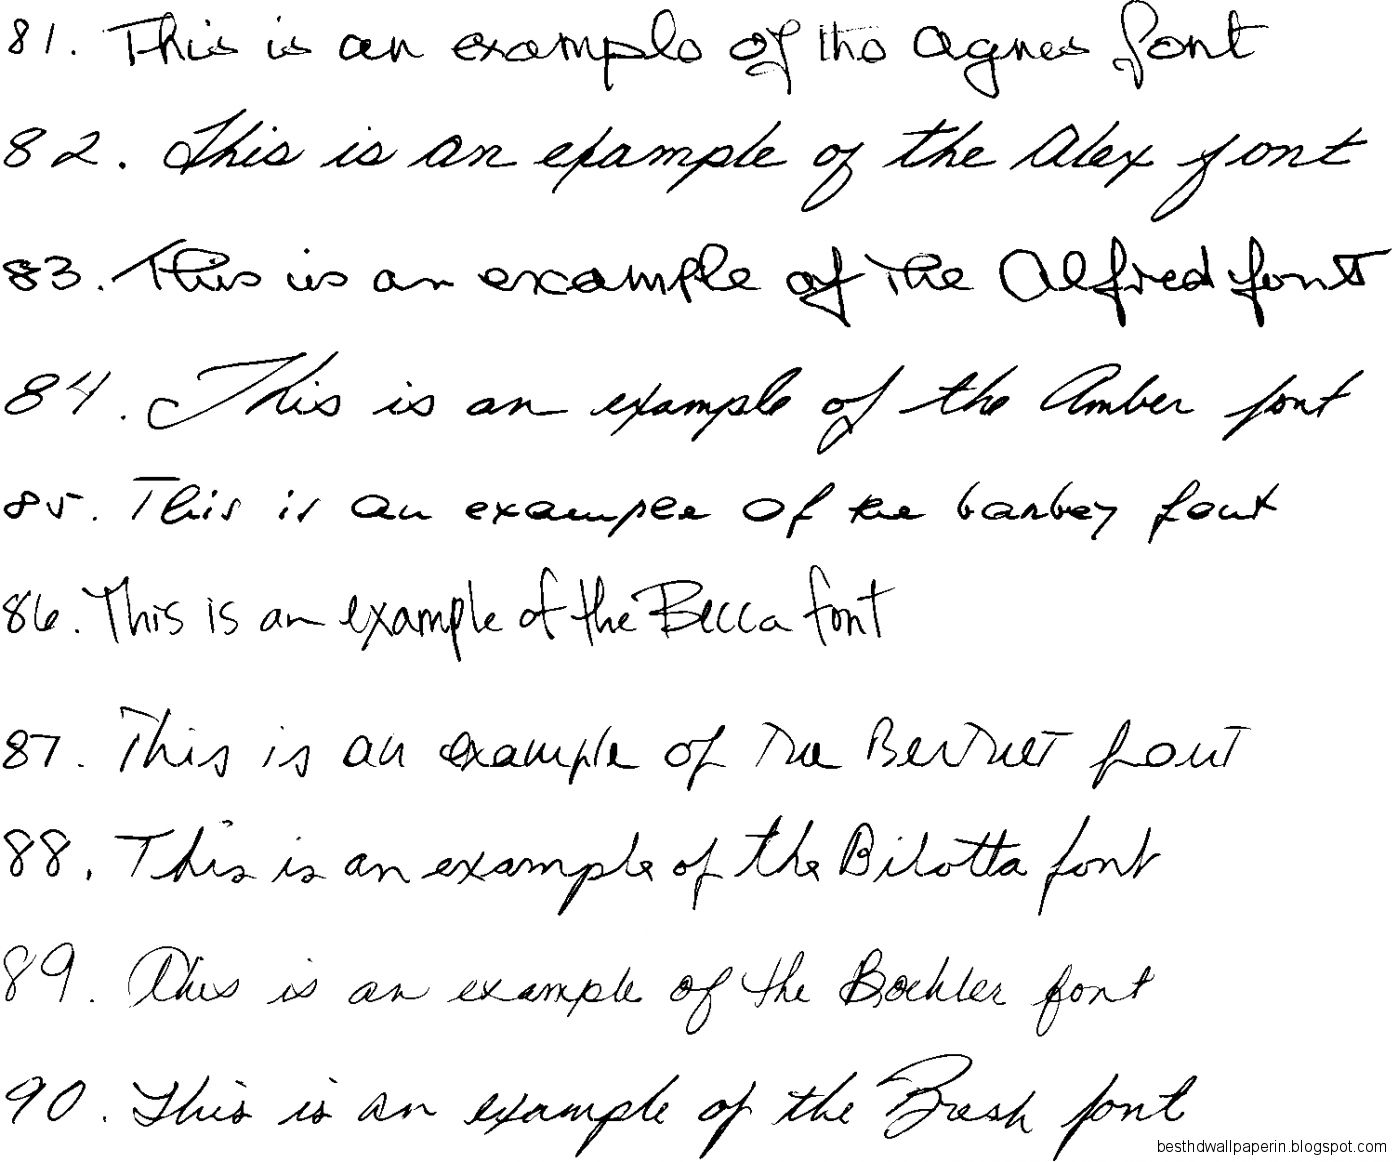 81. This is an example of the Agnes font
82. This is an example of the Alex font
83. This is an example of The Alfred font
84. This is an example of the Amber font
85. This is an example of the barbey font
86. This is an example of the Becca font
87. This is an example of The Berthet font
88. This is an example of the Bilotta font
89. This is an example of the Boehler font
90. This is an example of the Brash font
besthdwallpaperin.blogspot.com